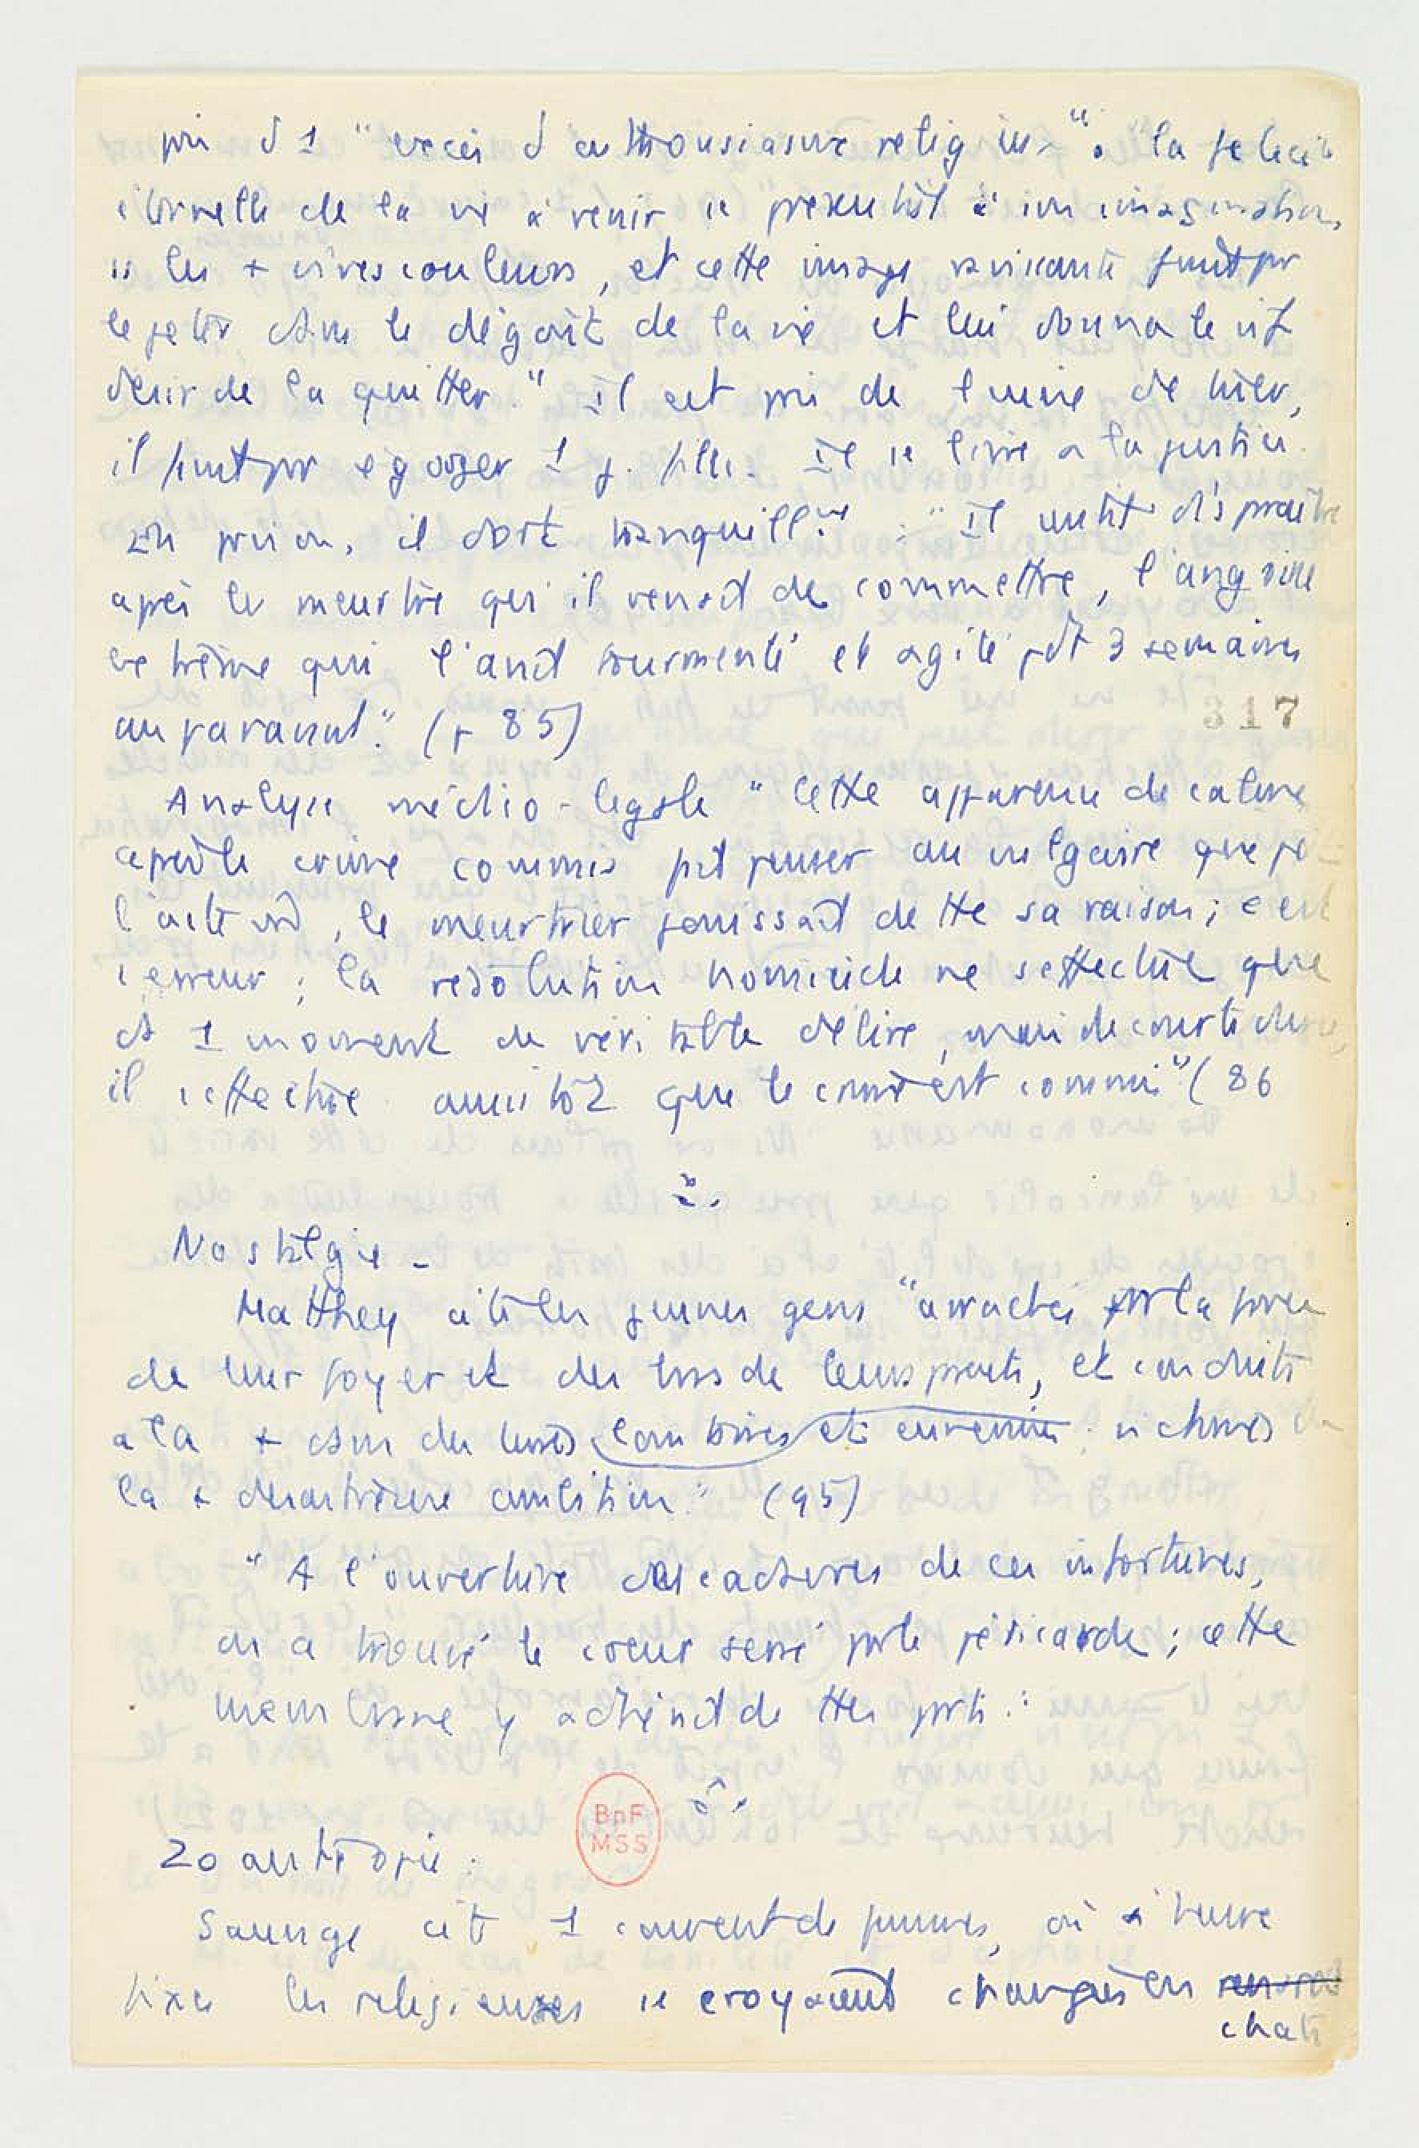 pris d 1 "excès d'enthousiasme religieux". "la félicité
éternelle de la vie à venir se présentait à son imagination,
ss les + vives couleurs, et cette image ravissante finit pr
le jeter dans le dégoût de la vie et lui donna le vif
désir de la quitter." Il est pris de l'envie de tuer,
il finit pr égorger 1 j. fille. Il se livre à la justice.
En prison, il dort tranquillemt : "Il sentit disparaître
après le meurtre qu'il venait de commettre, l'angoisse
extrême qui l'avait tourmenté et agité pdt 3 semaines
auparavant." (p 85)
317
Analyse médico-légale "Cette apparence de calme
après le crime commis fit penser au vulgaire que
l'acte, le meurtrier jouissait de tte sa raison; c'est
1 erreur; la résolution homicide ne s'effectue que
ds 1 moment de véritable délire, mais de courte durée,
il s'effectue aussitôt que le crime est commis" (86
Nostalgie -
Matthey cite les jeunes gens "arrachés par la force
de leur foyer et des bras de leurs parents, et conduits
à la + dans des terres lointaines et ennemies victimes de
la + désastreuse ambition." (95)
"A l'ouverture des cadavres de ces infortunés,
on a trouvé le coeur serré par le péricarde; cette
membrane y adhérait de ttes parts."
BnF
MSS
Zoanthropie.
Sauvage cite 1 couvent de femmes, où à heure
fixe les religieuses se croyaient changées en
chats